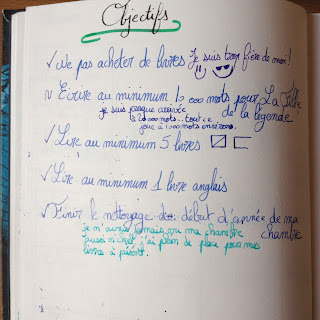 Objectifs
✓ Ne pas acheter de livres Je suis trop fière de moi !
~ Écrire au minimum 10 000 mots pour La Fille de la légende
je suis presque arrivée
à 20 000 mots... tout ce
joue à 1000 mots environ.
✓ Lire au minimum 5 livres
✓ Lire au minimum 1 livre anglais
✓ Finir le nettoyage de début d'année de ma chambre
je m'avais jamais vu ma chambre
aussi j'ai plein de place pour mes
livres à présent.